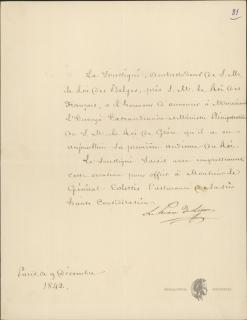 81
Le Soussigné, Ambassadeur de S. M.
le Roi des Belges, près S. M. le Roi des
Français, a l'honneur d'annoncer à Monsieur
l'Envoyé Extraordinaire et Ministre Plénipotentiaire
de S. M. le Roi de Grèce qu'il a eu
aujourd'hui sa première audience du Roi.
Le Soussigné saisit avec empressement
cette occasion pour offrir à Monsieur le
Général Colettis l'assurance de sa très
haute Considération.
Le Prince de Ligne
Paris, ce 9 Décembre
1842.